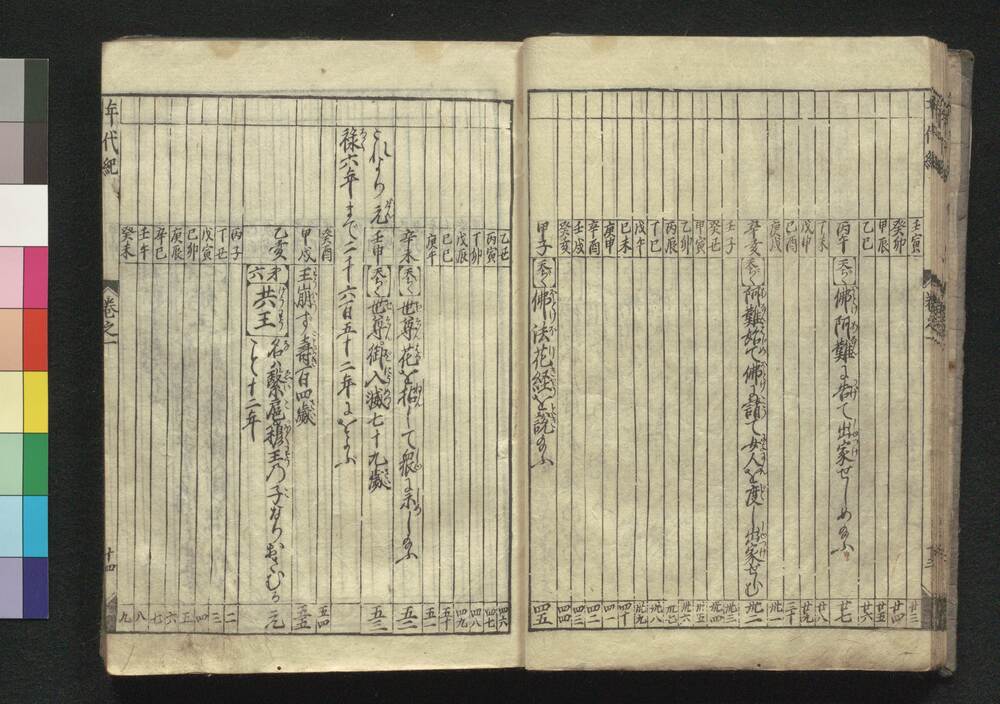 壬寅 廿三
癸卯 廿四
甲辰 廿五
乙巳 廿六
丙午 【天ぢく】佛阿難に告て出家せしめ給ふ 廿七
丁未 廿八
戊申 廿九
己酉 三十
庚戌 卅一
辛亥 【天ぢく】阿難始て佛に請て女人を度し出家せしむ 卅二
壬子 卅三
癸丑 卅四
甲寅 卅五
乙卯 卅六
丙辰 卅七
丁巳 卅八
戊午 卅九
己未 四十
庚申 四一
辛酉 四二
壬戌 四三
癸亥 四四
甲子 【天ぢく】佛法花経を説給ふ 四五
乙丑 四六
丙寅 四七
丁卯 四八
戊辰 四九
己巳 五十
庚午 五一
辛未 【天ぢく】世尊花を拈して衆に示し給ふ 五二
壬申 【天ぢく】世尊御入滅七十九歳 五三
これより元
禄六年まで二千六百五十二年におよぶ
癸酉 五四
甲戌 王崩ず壽百四歳 五五
乙亥 【才六 共王】名ハ繄扈穆王乃子なりおさむる 元
こと十二年
丙子 二
丁丑 三
戊寅 四
己卯 五
庚辰 六
辛巳 七
壬午 八
癸未 九
年代紀 卷之一 十四